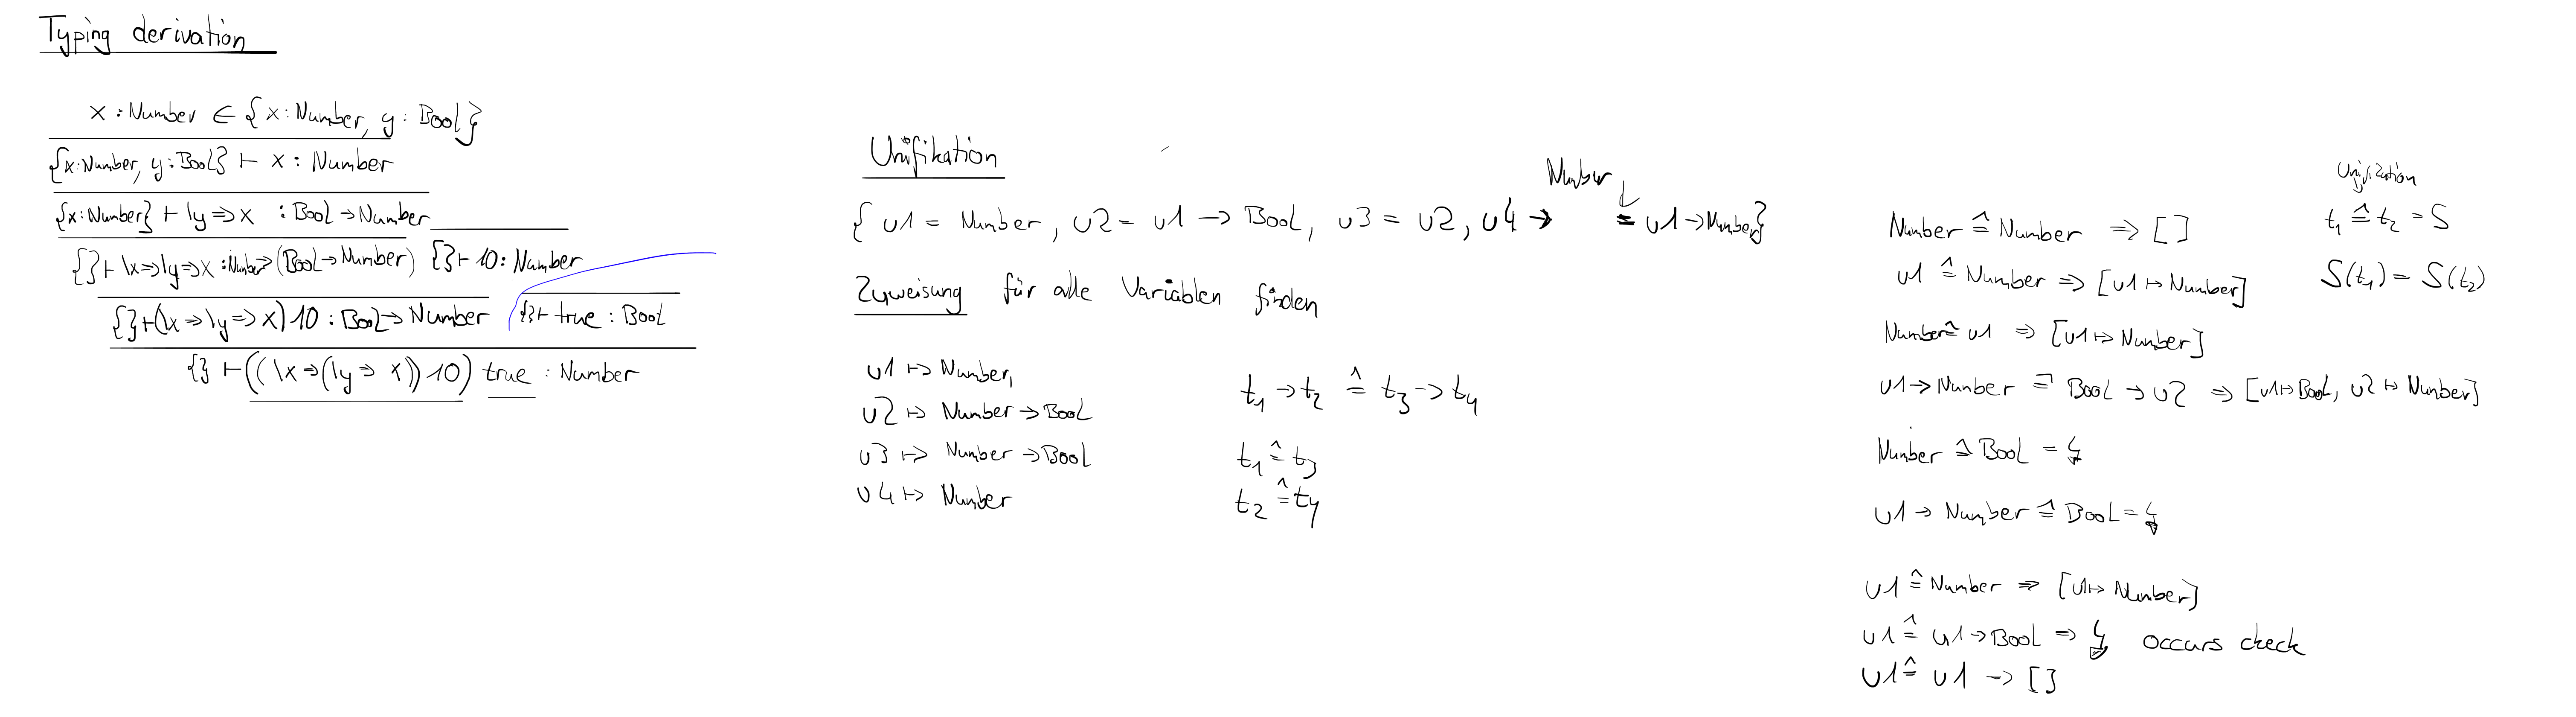 Typing derivation
x : Number ∈ {x : Number, y : Bool}
{x:Number, y:Bool} ⊢ x : Number
{x:Number} ⊢ \y => x : Bool → Number
{} ⊢ \x => \y => x : Number → (Bool → Number) {} ⊢ 10 : Number
{} ⊢ (\x => \y => x) 10 : Bool → Number {} ⊢ true : Bool
{} ⊢ ((\x => (\y => x)) 10) true : Number
Unifikation
Number
{ u1 = Number, u2 = u1 → Bool, u3 = u2, u4 → = u1 → Number}
Zuweisung für alle Variablen finden
u1 ↦ Number,
u2 ↦ Number → Bool
u3 ↦ Number → Bool
u4 ↦ Number
t₁ → t₂ ≙ t₃ → t₄
t₁ ≙ t₃
t₂ ≙ t₄
Number ≙ Number => []
u1 ≙ Number => [u1 ↦ Number]
Number ≙ u1 => [u1 ↦ Number]
u1 → Number ≙ Bool → u2 => [u1 ↦ Bool, u2 ↦ Number]
Number ≙ Bool = ↯
u1 → Number ≙ Bool = ↯
u1 ≙ Number => [u1 ↦ Number]
u1 ≙ u1 → Bool => ↯ occurs check
u1 ≙ u1 → []
Unifikation
t₁ ≙ t₂ = S
S(t₁) = S(t₂)